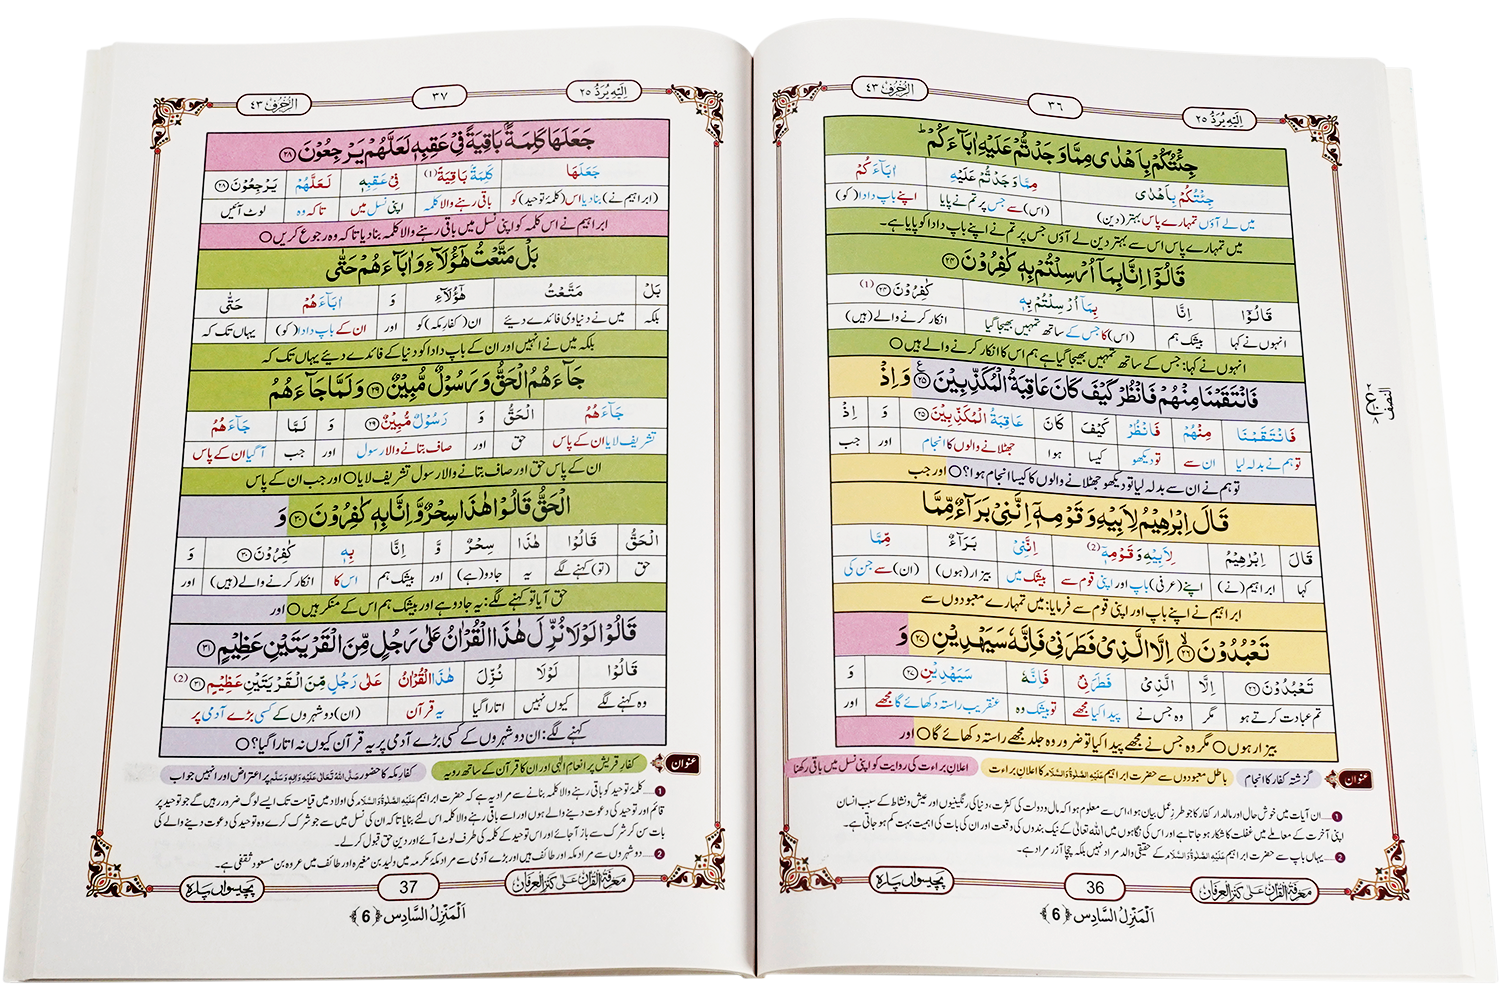 الزخرف ٤٣
٣٦
اِلَیْهِ یُرَدُّ ٢٥
جِئْتُكُمْ بِاَهْدٰى مِمَّا وَجَدْتُّمْ عَلَیْهِ اٰبَآءَكُمْؕ
جِئْتُكُمْ بِاَهْدٰى مِمَّا وَجَدْتُّمْ عَلَیْهِ اٰبَآءَكُمْ
میں لے آؤں تمہارے پاس بہتر (دین) (اس) سے جس پر تم نے پایا اپنے باپ دادا (کو)
میں تمہارے پاس اس سے بہتر دین لے آؤں جس پر تم نے اپنے باپ دادا کو پایا ہے۔
قَالُوْۤا اِنَّا بِمَاۤ اُرْسِلْتُمْ بِهٖ كٰفِرُوْنَ ﴿۲۴﴾
قَالُوْۤا اِنَّا بِمَاۤ اُرْسِلْتُمْ بِهٖ كٰفِرُوْنَ ﴿۲۴﴾ (1)
انہوں نے کہا بیشک ہم (اس) کا جس کے ساتھ تمہیں بھیجا گیا انکار کرنے والے (ہیں)
انہوں نے کہا: جس کے ساتھ تمہیں بھیجا گیا ہے ہم اس کا انکار کرنے والے ہیں ○
فَانْتَقَمْنَا مِنْهُمْ فَانْظُرْ كَیْفَ كَانَ عَاقِبَةُ الْمُكَذِّبِیْنَ ﴿۲۵﴾ وَ اِذْ
فَانْتَقَمْنَا مِنْهُمْ فَانْظُرْ كَیْفَ كَانَ عَاقِبَةُ الْمُكَذِّبِیْنَ ﴿۲۵﴾ وَ اِذْ
تو ہم نے بدلہ لیا ان سے تو دیکھو کیسا ہوا جھٹلانے والوں کا انجام اور جب
تو ہم نے ان سے بدلہ لیا تو دیکھو جھٹلانے والوں کا کیسا انجام ہوا؟ ○ اور جب
قَالَ اِبْرٰهِیْمُ لِاَبِیْهِ وَ قَوْمِهٖۤ اِنَّنِیْ بَرَآءٌ مِّمَّا
قَالَ اِبْرٰهِیْمُ لِاَبِیْهِ وَ قَوْمِهٖۤ (2) اِنَّنِیْ بَرَآءٌ مِّمَّا
کہا ابراہیم (نے) اپنے (عرفی) باپ اور اپنی قوم سے بیشک میں بیزار (ہوں) (ان) سے جن کی
ابراہیم نے اپنے باپ اور اپنی قوم سے فرمایا: میں تمہارے معبودوں سے
تَعْبُدُوْنَ ﴿۲۶﴾ اِلَّا الَّذِیْ فَطَرَنِیْ فَاِنَّهٗ سَیَهْدِیْنِ ﴿۲۷﴾ وَ
تَعْبُدُوْنَ ﴿۲۶﴾ اِلَّا الَّذِیْ فَطَرَنِیْ فَاِنَّهٗ سَیَهْدِیْنِ ﴿۲۷﴾ وَ
تم عبادت کرتے ہو مگر وہ جس نے پیدا کیا مجھے تو بیشک وہ عنقریب راستہ دکھائے گا مجھے اور
بیزار ہوں ○ مگر وہ جس نے مجھے پیدا کیا تو ضرور وہ جلد مجھے راستہ دکھائے گا ○ اور
عنوان گزشتہ کفار کا انجام باطل معبودوں سے حضرت ابراہیم عَلَیْهِ الصَّلٰوةُ وَالسَّلَام کا اعلانِ براءت اعلانِ براءت کی روایت کو اپنی نسل میں باقی رکھنا
1 ... ان آیات میں خوش حال اور مالدار کفار کا جو طرزِ عمل بیان ہوا، اس سے معلوم ہوا کہ مال و دولت کی کثرت، دنیا کی رنگینیوں اور عیش و نشاط کے سبب انسان
اپنی آخرت کے معاملے میں غفلت کا شکار ہو جاتا ہے اور اس کی نگاہوں میں اللہ تعالیٰ کے نیک بندوں کی وقعت اور ان کی بات کی اہمیت بہت کم ہو جاتی ہے۔
2 ... یہاں باپ سے حضرت ابراہیم عَلَیْهِ الصَّلٰوةُ وَالسَّلَام کے حقیقی والد مراد نہیں بلکہ چچا آزر مراد ہے۔
معرفۃ القرآن علی کنز العرفان
36
پچیسواں پارہ
اَلْمَنْزِلُ السَّادِس ﴿6﴾
النصف
الزخرف ٤٣
٣٧
اِلَیْهِ یُرَدُّ ٢٥
جَعَلَهَا كَلِمَةًۢ بَاقِیَةً فِیْ عَقِبِهٖ لَعَلَّهُمْ یَرْجِعُوْنَ ﴿۲۸﴾
جَعَلَهَا كَلِمَةًۢ بَاقِیَةً (1) فِیْ عَقِبِهٖ لَعَلَّهُمْ یَرْجِعُوْنَ ﴿۲۸﴾
(ابراہیم نے) بنا دیا اس (کلمۂ توحید) کو باقی رہنے والا کلمہ اپنی نسل میں تاکہ وہ لوٹ آئیں
ابراہیم نے اس کلمہ کو اپنی نسل میں باقی رہنے والا کلمہ بنا دیا تاکہ وہ رجوع کریں ○
بَلْ مَتَّعْتُ هٰۤؤُلَآءِ وَ اٰبَآءَهُمْ حَتّٰى
بَلْ مَتَّعْتُ هٰۤؤُلَآءِ وَ اٰبَآءَهُمْ حَتّٰى
بلکہ میں نے دنیاوی فائدے دیئے ان (کفارِ مکہ) کو اور ان کے باپ دادا (کو) یہاں تک کہ
بلکہ میں نے انہیں اور ان کے باپ دادا کو دنیا کے فائدے دیئے یہاں تک کہ
جَآءَهُمُ الْحَقُّ وَ رَسُوْلٌ مُّبِیْنٌ ﴿۲۹﴾ وَ لَمَّا جَآءَهُمُ
جَآءَهُمُ الْحَقُّ وَ رَسُوْلٌ مُّبِیْنٌ ﴿۲۹﴾ وَ لَمَّا جَآءَهُمُ
تشریف لایا ان کے پاس حق اور صاف بتانے والا رسول اور جب آگیا ان کے پاس
ان کے پاس حق اور صاف بتانے والا رسول تشریف لایا ○ اور جب ان کے پاس
الْحَقُّ قَالُوْا هٰذَا سِحْرٌ وَّ اِنَّا بِهٖ كٰفِرُوْنَ ﴿۳۰﴾ وَ
الْحَقُّ قَالُوْا هٰذَا سِحْرٌ وَّ اِنَّا بِهٖ كٰفِرُوْنَ ﴿۳۰﴾ وَ
حق (تو) کہنے لگے یہ جادو (ہے) اور بیشک ہم اس کا انکار کرنے والے (ہیں) اور
حق آیا تو کہنے لگے: یہ جادو ہے اور بیشک ہم اس کے منکر ہیں ○ اور
قَالُوْا لَوْ لَا نُزِّلَ هٰذَا الْقُرْاٰنُ عَلٰى رَجُلٍ مِّنَ الْقَرْیَتَیْنِ عَظِیْمٍ ﴿۳۱﴾
قَالُوْا لَوْ لَا نُزِّلَ هٰذَا الْقُرْاٰنُ عَلٰى رَجُلٍ مِّنَ الْقَرْیَتَیْنِ عَظِیْمٍ ﴿۳۱﴾ (2)
وہ کہنے لگے کیوں نہیں اتارا گیا یہ قرآن (ان) دو شہروں کے کسی بڑے آدمی پر
کہنے لگے: ان دو شہروں کے کسی بڑے آدمی پر یہ قرآن کیوں نہ اتارا گیا؟ ○
عنوان کفارِ قریش پر انعامِ الٰہی اور ان کا قرآن کے ساتھ رویہ کفارِ مکہ کا حضور صَلَّى اللهُ تَعَالٰى عَلَیْهِ وَاٰلِهٖ وَسَلَّم پر اعتراض اور انہیں جواب
1 ... کلمۂ توحید کو باقی رہنے والا کلمہ بنانے سے مراد یہ ہے کہ حضرت ابراہیم عَلَیْهِ الصَّلٰوةُ وَالسَّلَام کی اولاد میں قیامت تک ایسے لوگ ضرور رہیں گے جو توحید پر
قائم اور توحید کی دعوت دینے والے ہوں اور اسے باقی رہنے والا کلمہ اس لئے بنایا تاکہ ان کی نسل میں سے جو شرک کرے وہ توحید کی دعوت دینے والے کی
بات سن کر شرک سے باز آجائے اور اس توحید کے کلمہ کی طرف لوٹ آئے اور دینِ حق قبول کر لے۔
2 ... دو شہروں سے مراد مکہ اور طائف ہیں اور بڑے آدمی سے مراد مکہ مکرمہ میں ولید بن مغیرہ اور طائف میں عروہ بن مسعود ثقفی ہے۔
معرفۃ القرآن علی کنز العرفان
37
پچیسواں پارہ
اَلْمَنْزِلُ السَّادِس ﴿6﴾